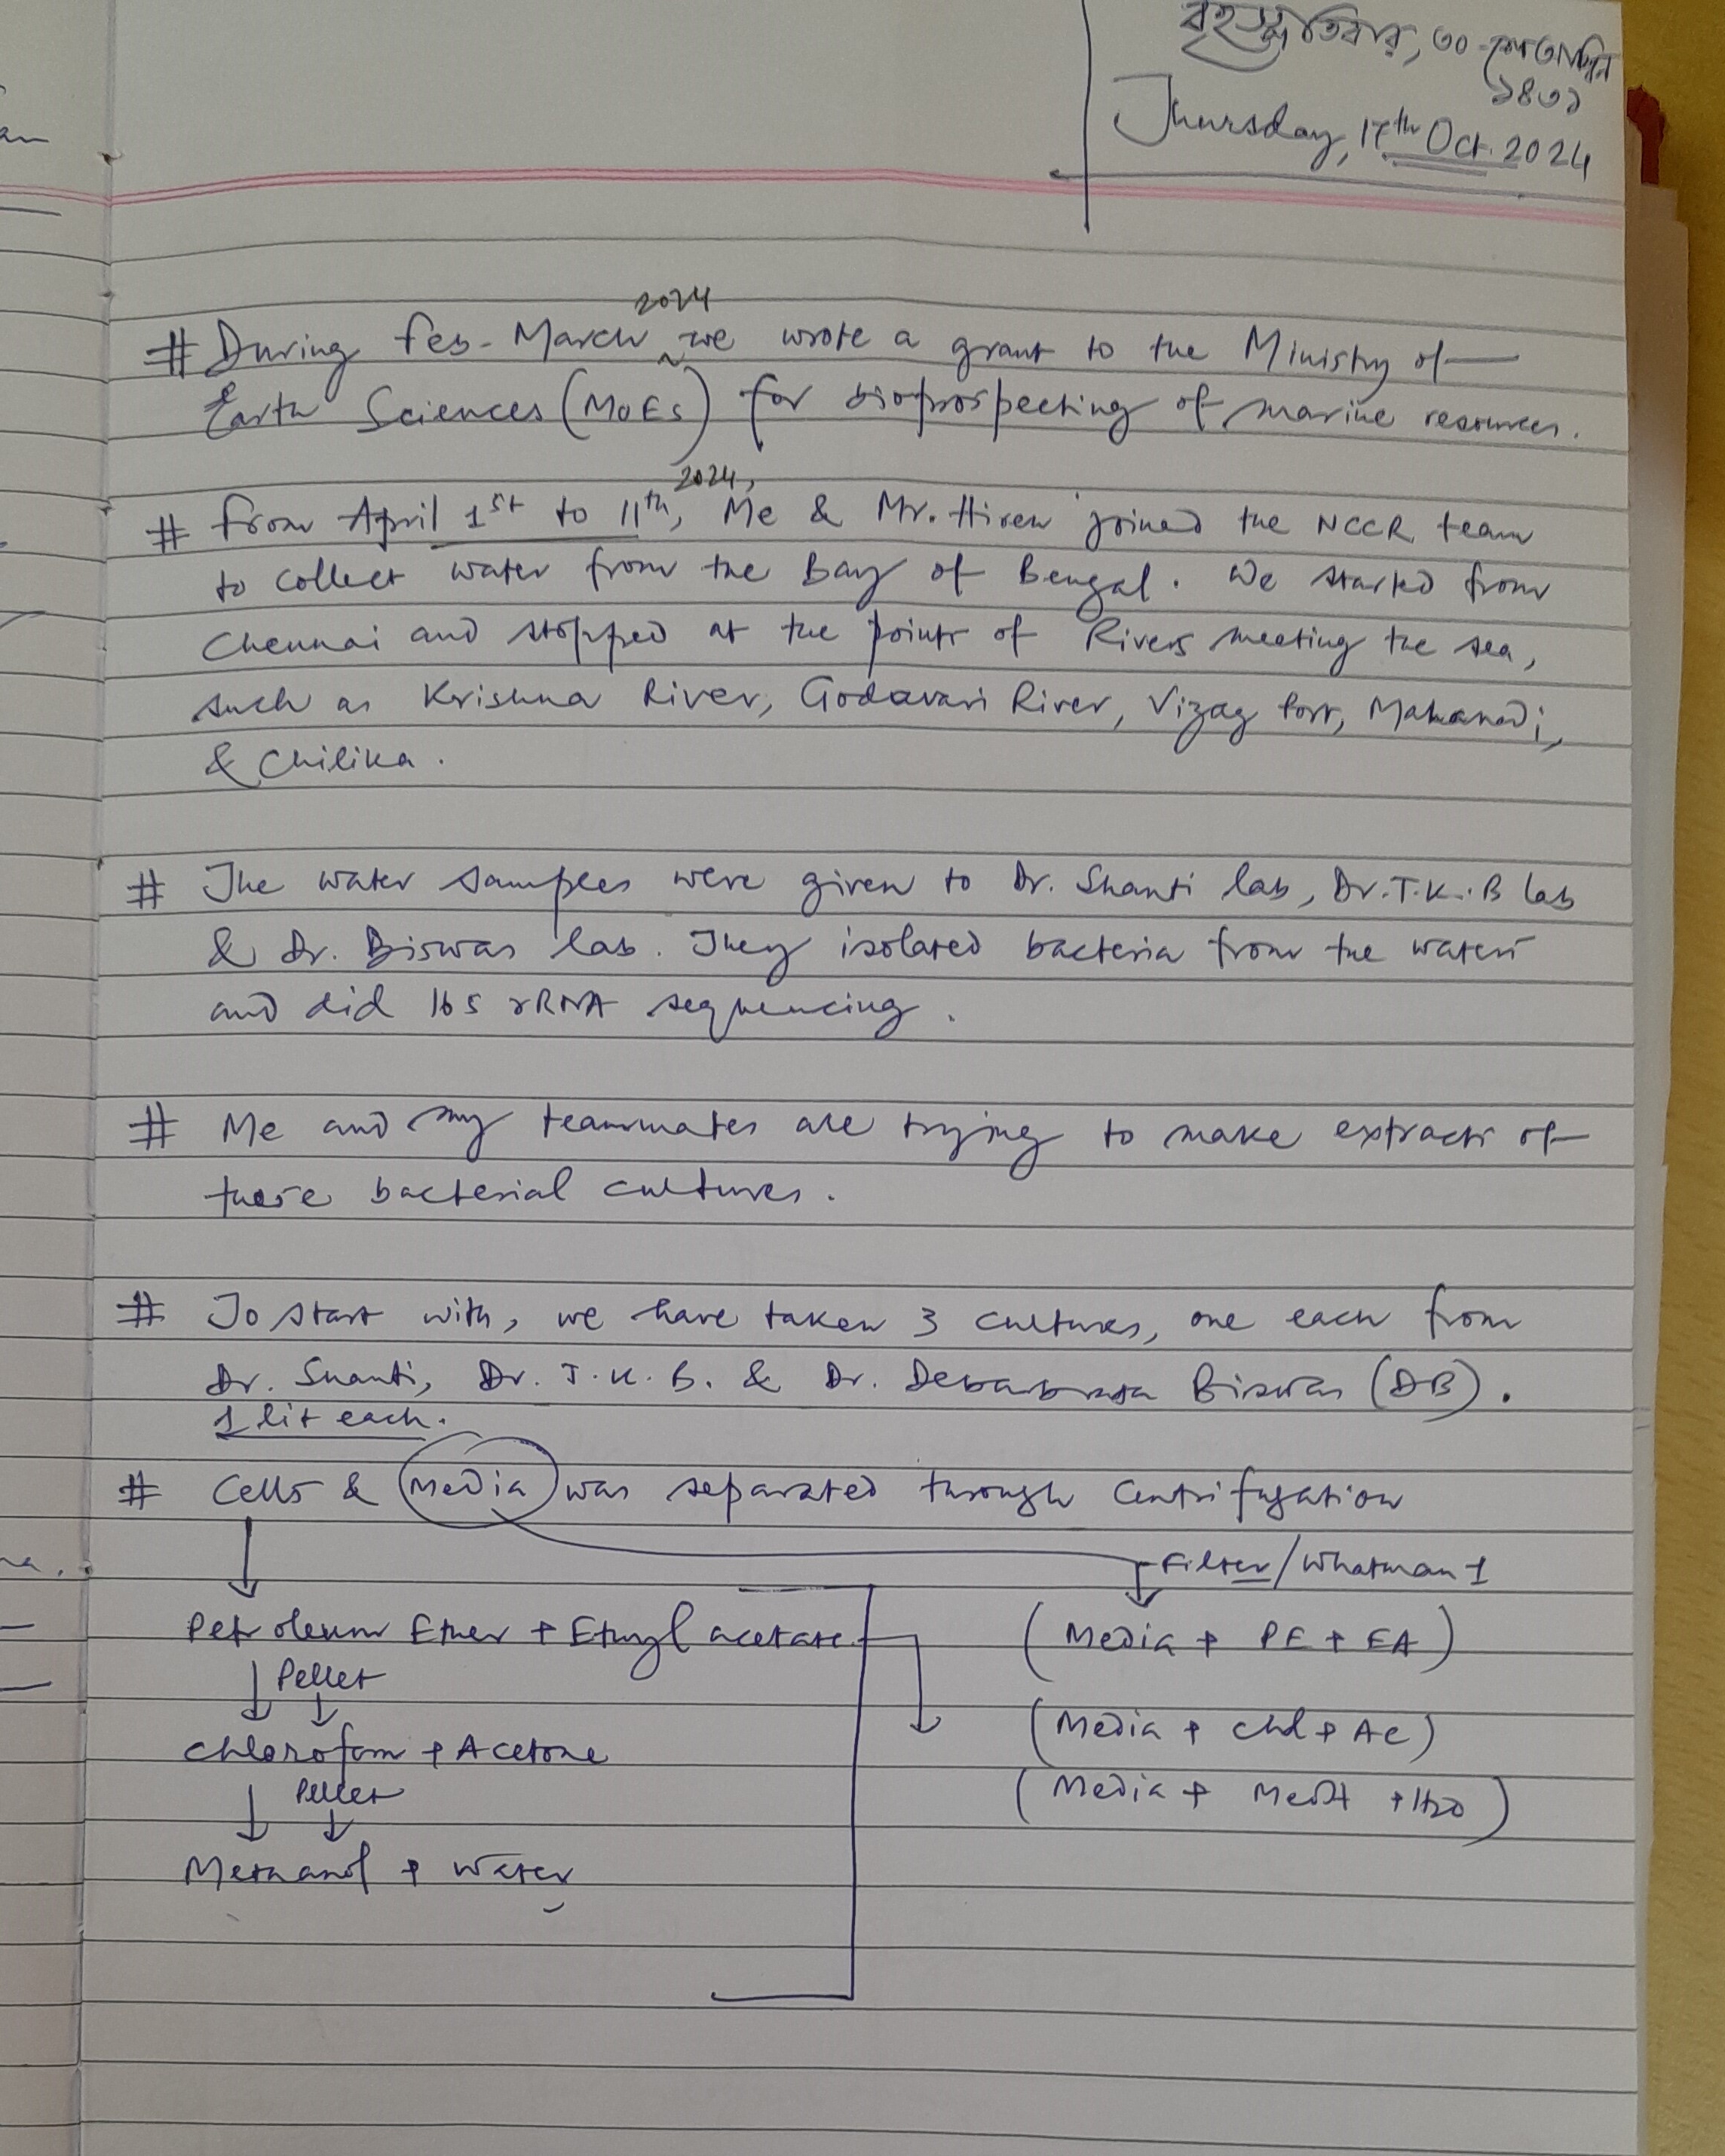 বৃহস্পতিবার, ৩০ আশ্বিন
১৪৩১
Thursday, 17th Oct. 2024
2024
# During Feb-March we wrote a grant to the Ministry of
Earth Sciences (MoES) for bioprospecting of marine resources.
2024,
# From April 1st to 11th, Me & Mr. Hiren joined the NCCR team
to collect water from the Bay of Bengal. We started from
Chennai and stopped at the points of Rivers meeting the sea,
such as Krishna River, Godavari River, Vizag Port, Mahanadi,
& Chilika.
# The water samples were given to Dr. Shanti lab, Dr. T.K.B lab
& Dr. Biswas lab. They isolated bacteria from the waters
and did 16S rRNA sequencing.
# Me and my teammates are trying to make extracts of
these bacterial cultures.
# To start with, we have taken 3 cultures, one each from
Dr. Shanti, Dr. T.K.B. & Dr. Debabrata Biswas (DB).
1 lit each.
# Cells & Media was separated through Centrifugation
Filter/Whatman 1
Petroleum Ether + Ethyl acetate
(Media + PE + EA)
Pellet
(Media + Chl + Ac)
Chlorofom + Acetone
Pellet
(Media + MeOH + H2O)
Methanol + Water